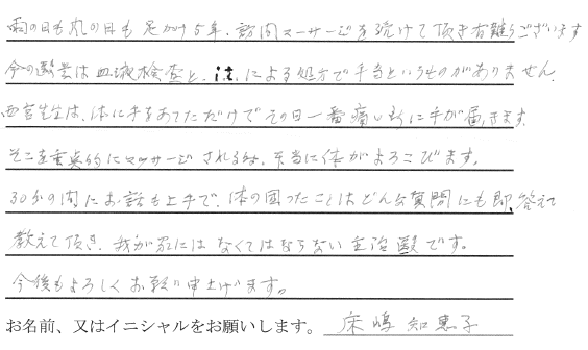 雨の日も風の日も足かけ5年、訪問マッサージを続けて頂き有難うございます
今の医者は血液検査と、it、による処方で手当というものがありません。
西宮先生は、体に手をあてただけでその日一番痛い所に手が届きます。
そこを重点的にマッサージされる為、本当に体がよろこびます。
30分の間にお話も上手で、体の困ったことはどんな質問にも即、答えて
教えて頂き、我が家にはなくてはならない主治医です。
今後もよろしくお願い申上げます。
お名前、又はイニシャルをお願いします。 床嶋 知恵子